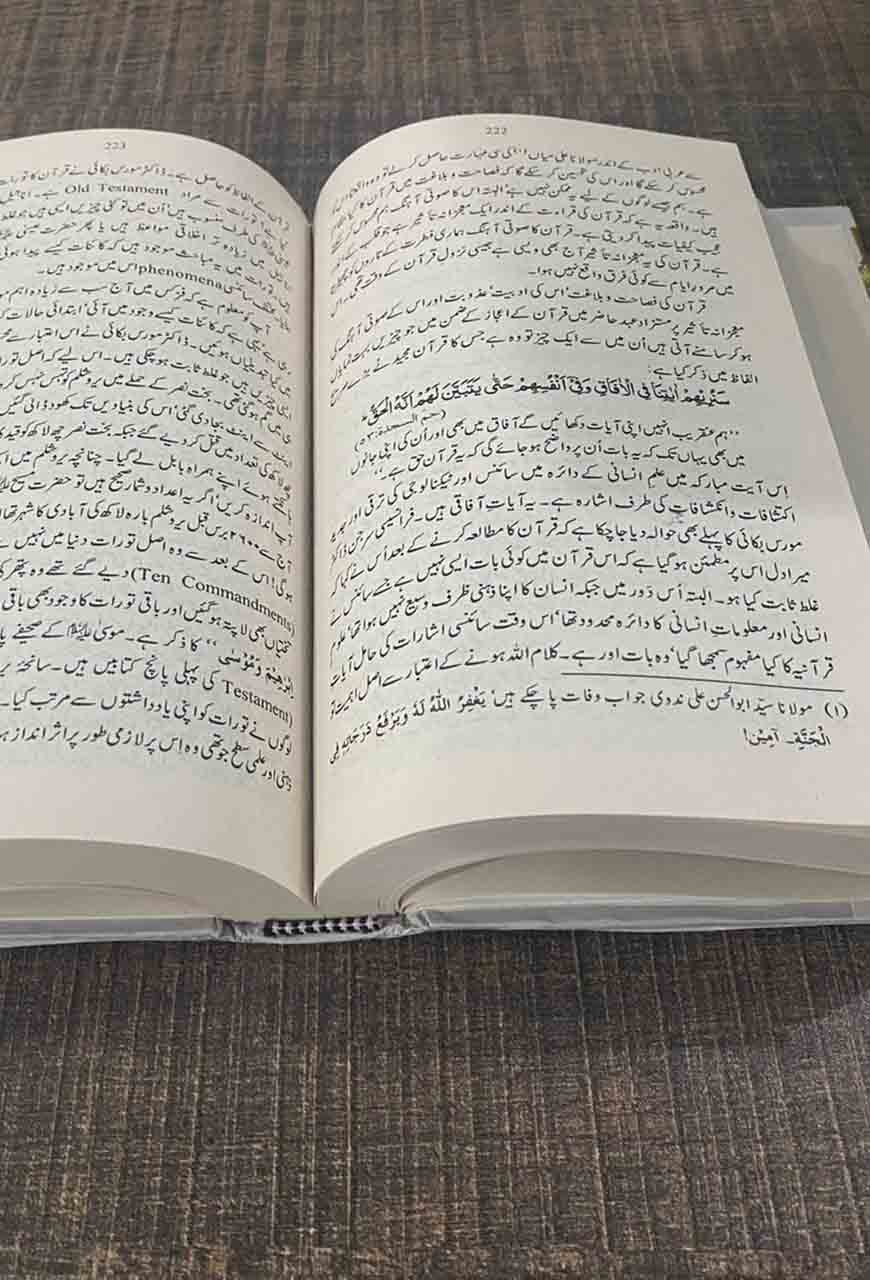 222
سے عربی ادب کے اندر مولانا علی میاں (۱) کی سی مہارت حاصل کرے تو وہ واقعتاً اس کو
محسوس کر سکے گا اور اس کی تحسین کر سکے گا کہ فصاحت و بلاغت میں قرآن کا کیا مقام
ہے۔ ہم جیسے لوگوں کے لیے یہ ممکن نہیں ہے' البتہ اس کا صوتی آہنگ ہم محسوس کر سکتے
ہیں۔ واقعہ یہ ہے کہ قرآن کی قراءت کے اندر ایک معجزانہ تاثیر ہے جو قلب کے اندر
عجیب کیفیات پیدا کر دیتی ہے۔ قرآن کا صوتی آہنگ ہماری فطرت کے تاروں کو چھیڑتا
ہے۔ قرآن کی یہ معجزانہ تاثیر آج بھی ویسی ہے جیسی نزول قرآن کے وقت تھی۔ اس
میں مرورِ ایام سے کوئی فرق واقع نہیں ہوا۔
قرآن کی فصاحت و بلاغت' اس کی ادبیت' عذوبت اور اس کے صوتی آہنگ کی
معجزانہ تاثیر پر مستزاد عہد حاضر میں قرآن کے اعجاز کے ضمن میں جو چیزیں بہت نمایاں
ہو کر سامنے آتی ہیں اُن میں سے ایک چیز تو وہ ہے جس کا قرآن مجید نے بڑے صریح
الفاظ میں ذکر کیا ہے:
سَنُرِيْهِمْ اٰيٰتِنَا فِي الْاٰفَاقِ وَفِيْٓ اَنْفُسِهِمْ حَتّٰى يَتَبَيَّنَ لَهُمْ اَنَّهُ الْحَقُّ ۭ
(حم السجدة:۵۳)
''ہم عنقریب انہیں اپنی آیات دکھائیں گے آفاق میں بھی اور اُن کی اپنی جانوں
میں بھی یہاں تک کہ یہ بات اُن پر واضح ہو جائے گی کہ یہ قرآن حق ہے۔''
اِس آیت مبارکہ میں علمِ انسانی کے دائرہ میں سائنس اور ٹیکنالوجی کی ترقی اور جدید
اکتشافات و انکشافات کی طرف اشارہ ہے۔ یہ آیاتِ آفاقی ہیں۔ فرانسیسی سرجن ڈاکٹر
مورس بکائی کا پہلے بھی حوالہ دیا جا چکا ہے کہ قرآن کا مطالعہ کرنے کے بعد اُس نے کہا کہ
میرا دل اس پر مطمئن ہو گیا ہے کہ اس قرآن میں کوئی بات ایسی نہیں ہے جسے سائنس نے
غلط ثابت کیا ہو۔ البتہ اُس دَور میں جبکہ انسان کا اپنا ذہنی ظرف وسیع نہیں ہوا تھا' علومِ
انسانی اور معلوماتِ انسانی کا دائرہ محدود تھا' اس وقت سائنسی اشارات کی حامل آیاتِ
قرآنیہ کا کیا مفہوم سمجھا گیا' وہ بات اور ہے۔ کلام اللہ ہونے کے اعتبار سے اصل اہمیت تو
(۱) مولانا سیّد ابوالحسن علی ندوی جو اب وفات پا چکے ہیں' يَغْفِرُ اللّٰهُ لَهُ وَيَرْفَعُ دَرَجَاتِهِ فِي
الْجَنَّةِ۔ آمِيْن!
223
قرآن کے الفاظ کو حاصل ہے۔ ڈاکٹر مورس بکائی نے قرآن کا تورات
کیا ہے! تورات سے مراد Old Testament ہے۔
کی طرف منسوب ہیں' اُن میں تو کئی چیزیں ایسی ہیں جو غلط
میں زیادہ تر اخلاقی مواعظ ہیں یا پھر حضرت عیسیٰ
تورات میں یہ مباحث موجود ہیں کہ کائنات کیسے پیدا ہوئی
مختلف سائنسی phenomena اس میں موجود ہیں۔
آپ کو معلوم ہے کہ فزکس میں آج سب سے زیادہ اہم
یہی ہے کہ کائنات کیسے وجود میں آئی' ابتدائی حالات کیا
میں کیا تبدیلیاں ہوئیں۔ ڈاکٹر مورس بکائی نے اس اعتبار سے
چیزیں ہیں جو غلط ثابت ہو چکی ہیں۔ اس لیے کہ اصل تورات
میں گم ہو گئی تھی۔ بخت نصر کے حملے میں یروشلم کو تہس نہس کر
اینٹ سے اینٹ بجا دی گئی' اس کی بنیادیں تک کھود ڈالی گئیں
لاکھ کی تعداد میں قتل کر دیے گئے جبکہ بخت نصر چھ لاکھ کو قید
ہوئے اپنے ہمراہ بابل لے گیا۔ چنانچہ یروشلم میں
آپ اندازہ کریں' اگر یہ اعداد و شمار صحیح ہیں تو حضرت مسیح
آج سے ۲۶۰۰ برس قبل یروشلم بارہ لاکھ کی آبادی کا شہر تھا
ہوگی! اس کے بعد سے وہ اصل تورات دنیا میں نہیں
(Ten Commandments) دیے گئے تھے وہ پتھر
تختیاں بھی لاپتہ ہو گئیں اور باقی تورات کا وجود بھی باقی
اِبْرٰهِيْمَ وَمُوْسٰى'' کا ذکر ہے۔ موسیٰ علیہ السلام کے صحیفے
Testament) کی پہلی پانچ کتابیں ہیں۔ سانحۂ
لوگوں نے تورات کو اپنی یادداشتوں سے مرتب کیا۔
ذہنی اور علمی سطح جو تھی وہ اس پر لازمی طور پر اثر انداز